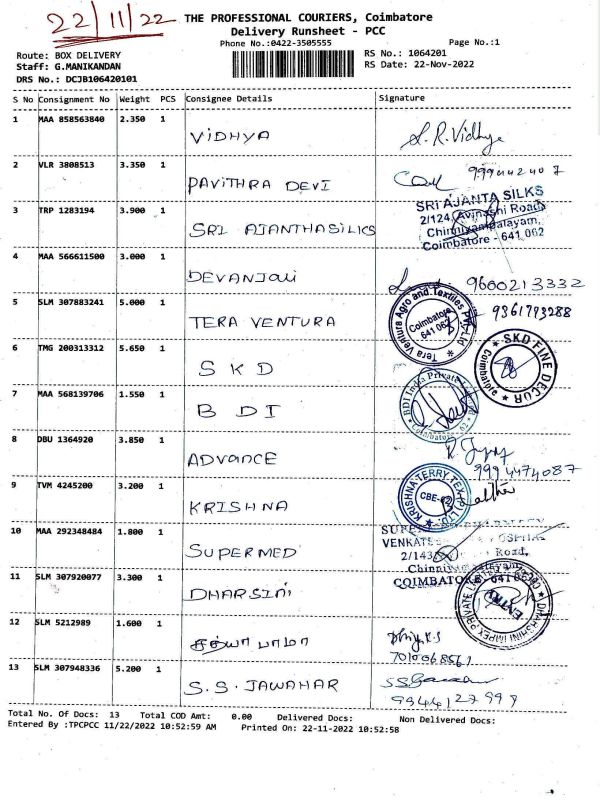 22/11/22
THE PROFESSIONAL COURIERS, Coimbatore
Delivery Runsheet - PCC
Phone No.:0422-3505555
Page No.:1
Route: BOX DELIVERY
RS No.: 1064201
Staff: G.MANIKANDAN
RS Date: 22-Nov-2022
DRS No.: DCJB106420101
S No Consignment No Weight PCS Consignee Details Signature
1 MAA 858563840 2.350 1 VIDHYA S.R.Vidhya
2 VLR 3808513 3.350 1 PAVITHRA DEVI 9994442407
SRI AJANTA SILKS
2/124, Avinashi Road,
Chinniyampalayam,
Coimbatore - 641 062
3 TRP 1283194 3.900 1 SRI AJANTHA SILKS
4 MAA 566611500 3.000 1 DEVANJali 9600213332
5 SLM 307883241 5.000 1 TERA VENTURA 9361793288
Tera Ventura Agro and Textiles Pvt. Ltd
Coimbatore
641 062
6 TMG 200313312 5.650 1 SKD
SKD FINE DECOR
Coimbatore
7 MAA 568139706 1.550 1 BDI
BDI India Private
Coimbatore - 62
8 DBU 1364920 3.850 1 ADVANCE
9994474087
9 TVM 4245200 3.200 1 KRISHNA
KRISHNA TERRY TEX (P) LTD.
CBE-62
10 MAA 292348484 1.800 1 SUPERMED
VENKATE
2/143
Road,
Chinniyampalayam,
COIMBATORE 641062
11 SLM 307920077 3.300 1 DHARSINI
DHARSHINI IMPEX PRIVATE LIMITED
ENTRY
12 SLM 5212989 1.600 1 சத்யா பாமா
7010068561
13 SLM 307948336 5.200 1 S.S.JAWAHAR
9944127998
Total No. Of Docs: 13 Total COD Amt: 0.00 Delivered Docs: Non Delivered Docs:
Entered By :TPCPCC 11/22/2022 10:52:59 AM Printed On: 22-11-2022 10:52:58